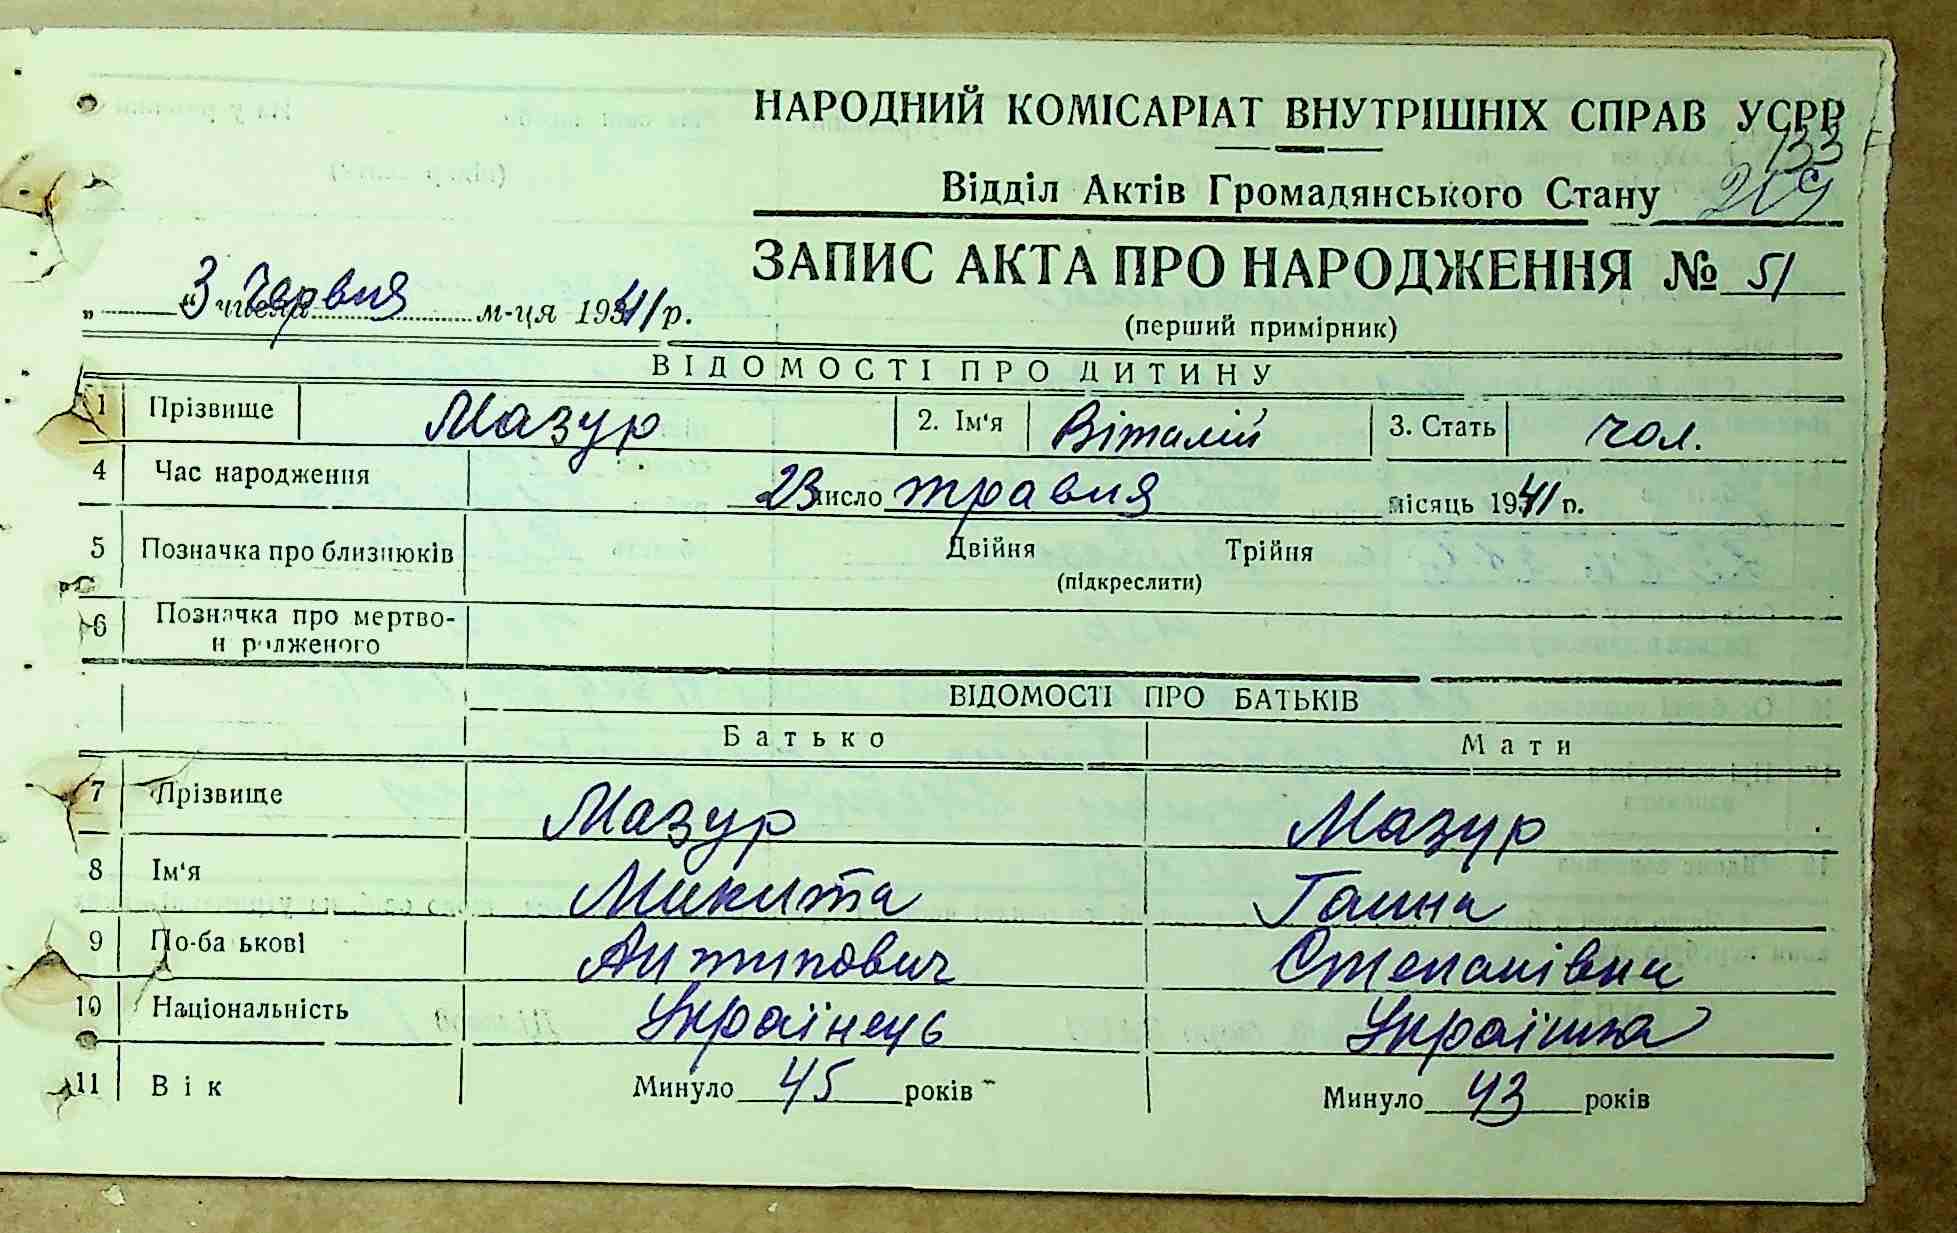 НАРОДНИЙ КОМІСАРІАТ ВНУТРІШНІХ СПРАВ УСРР
133
Відділ Актів Громадянського Стану 209
ЗАПИС АКТА ПРО НАРОДЖЕННЯ № 51
„ 3 числа Червня м-ця 1941 р.
(перший примірник)
ВІДОМОСТІ ПРО ДИТИНУ
1 Прізвище Мазур 2. Ім'я Віталій 3. Стать чол.
4 Час народження 23 число травня місяць 1941 р.
5 Позначка про близнюків Двійня Трійня
(підкреслити)
6 Позначка про мертво-
н родженого
ВІДОМОСТІ ПРО БАТЬКІВ
Батько Мати
7 Прізвище Мазур Мазур
8 Ім'я Микита Ганна
9 По-ба ькові Антипович Степанівна
10 Національність Українець Українка
11 Вік Минуло 45 років Минуло 43 років